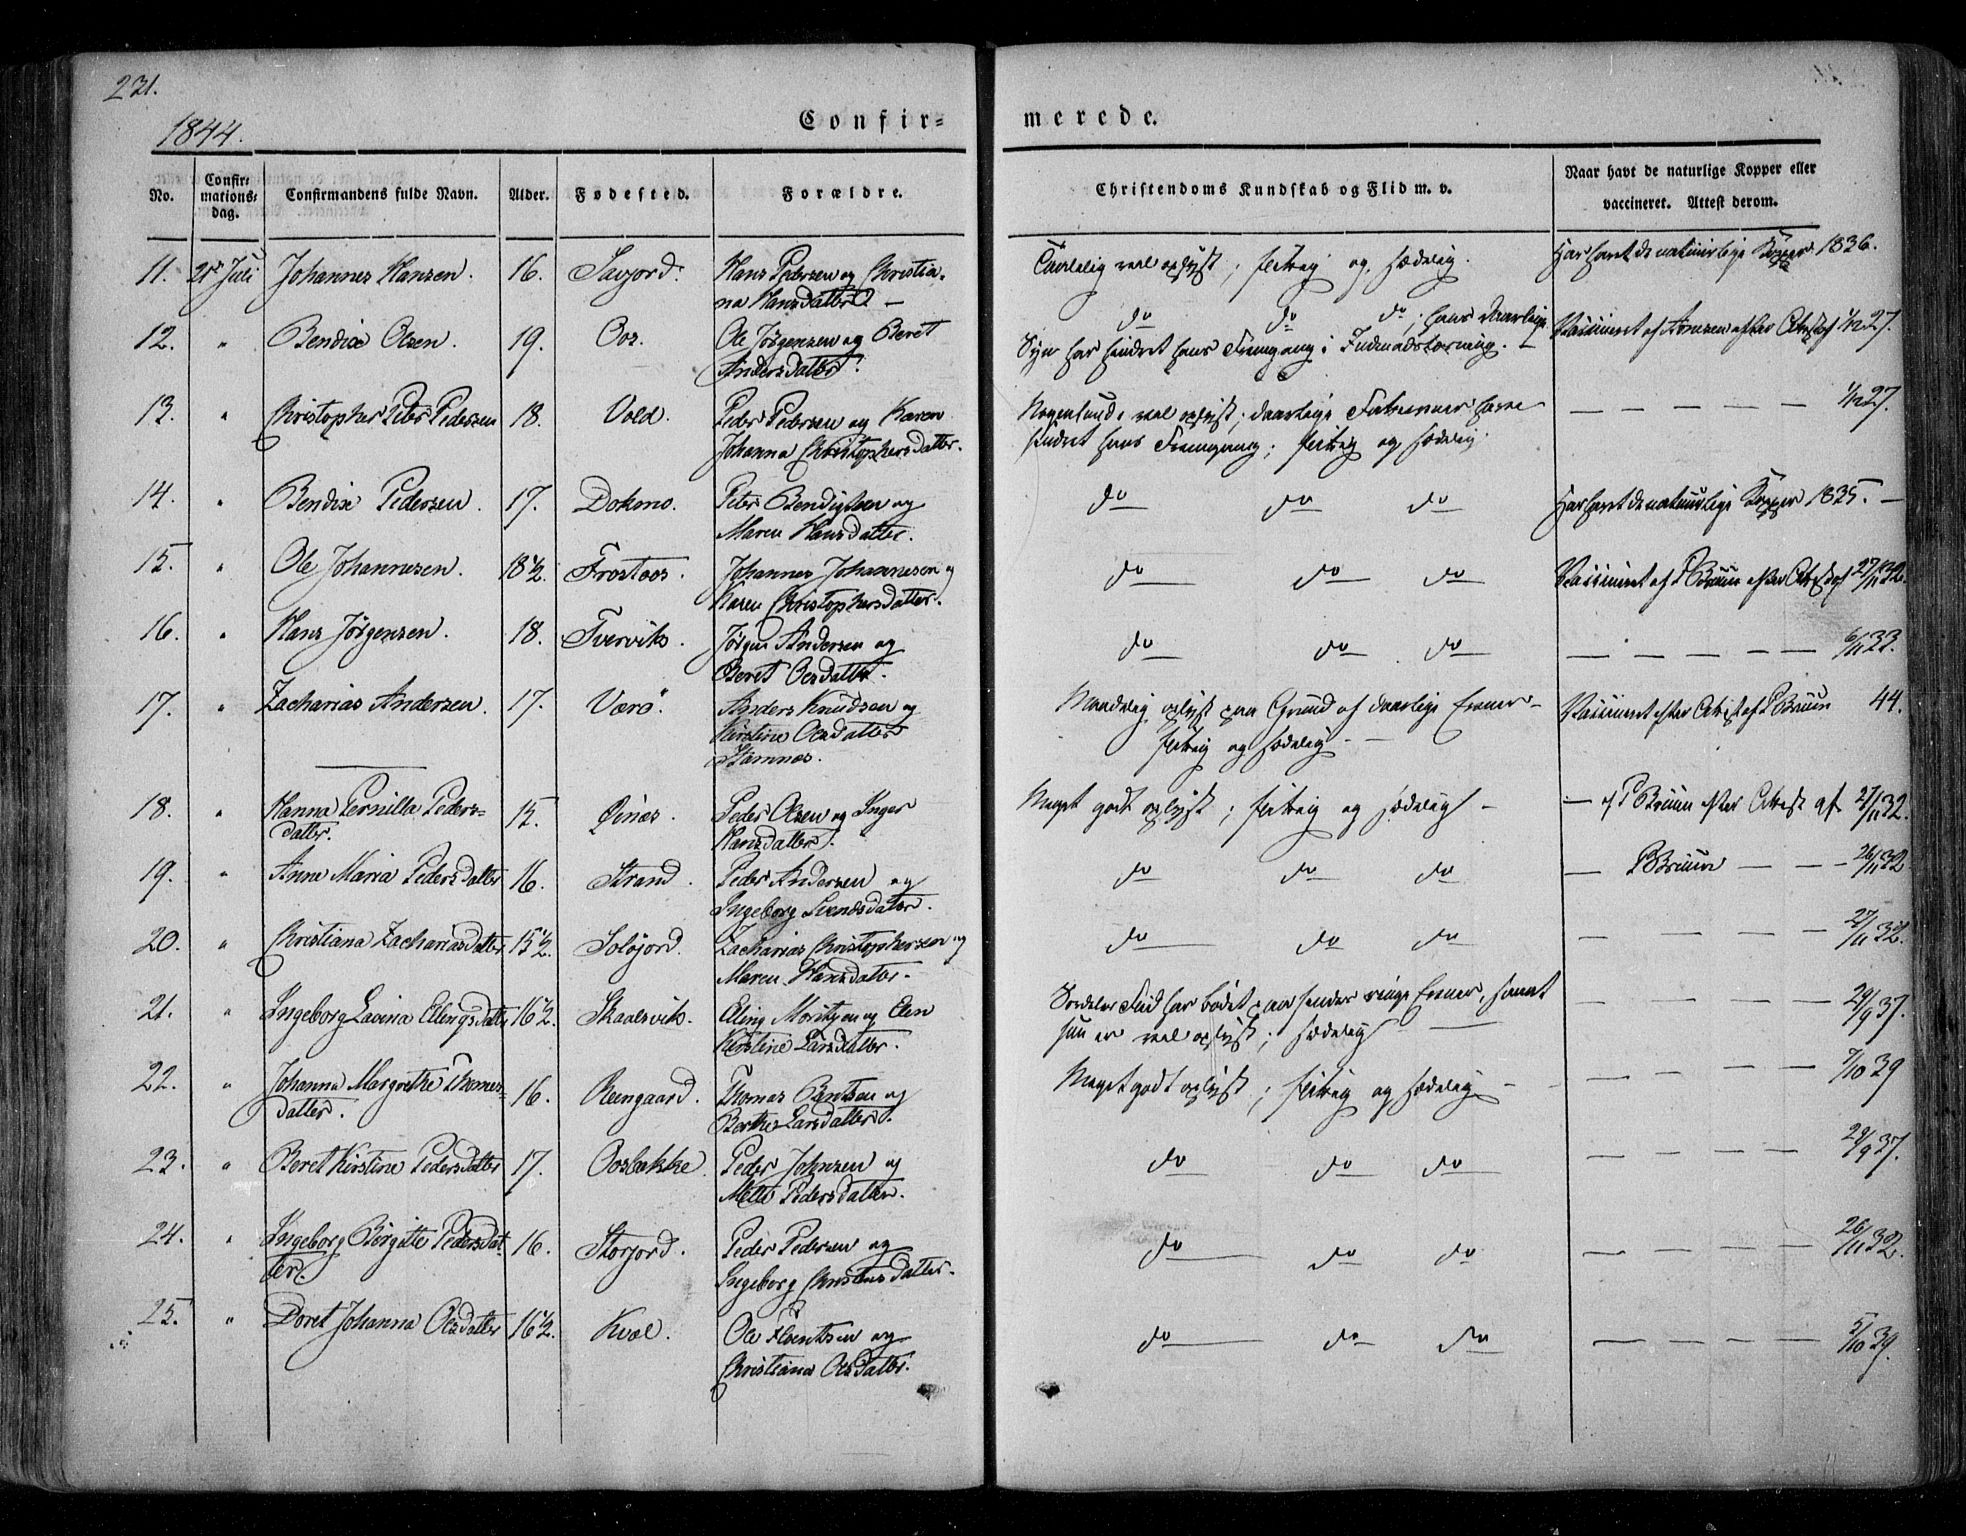 221.
1844.
Confir= merede.
No. Confir= mations= dag. Confirmandens fulde Navn. Alder. Fødested. Forældre. Christendoms Kundskab og Flid m. v. Naar havt de naturlige Kopper eller vaccineret. Attest derom.
11. 21de Juli Johannes Hansen. 16. Savjord. Hans Pedersen og Christia- Taalelig vel oplyst; flittig og sædelig. Har havt de naturlige Kopper 1836.
na Hansdatter —
12. " Bendix Olsen. 19. Oos. Ole Jørgensen og Beret do do do; hans daarlige Vaccineret af Arnesen efter Attest af 1/12 27.
Andersdatter. Syn har hindret hans Fremgang i Indenadslæsning.
13. " Christopher Peter Pedersen 18. Vold. Peder Pedersen og Karen Nogenlunde vel oplyst; daarlige have — — — — 1/12 27.
Johanna Christophersdatter. hindret hans Fremgang; flittig og sædelig.
14. " Bendix Pedersen. 17. Dokmo. Peter Bendigtsen og do do do Har havt de naturlige Kopper 1835. —
Maren Hansdatter.
15. " Ole Johannesen. 18 1/2. Frostoos. Johannes Johannesen og do do do Vaccineret af P Bruun efter Attest af 27/11 32.
Karen Christophersdatter.
16. " Hans Jørgensen. 18. Tvervik. Jørgen Andersen og do do do — — — — 6/11 33.
Beret Olsdatter.
17. " Zacharias Andersen. 17. Værø. Anders Knudsen og Maadelig oplyst paa Grund af daarlige Evner — Vaccineret efter Attest af P Bruun 44.
Kirstine Olsdatter flittig og sædelig. —
Stamnæs.
18. " Hanna Pernilla Peders- 15. Øinæs. Peder Olsen og Inger Meget godt oplyst; flittig og sædelig — — af P Bruun efter Attest af 27/11 32.
datter. Hansdatter.
19. " Anne Maria Pedersdatter 16. Strand. Peder Andersen og do do do — P Bruun — — — 26/11 32
Ingeborg Svendsdatter.
20. " Christiana Zachariasdatter 15 1/2. Soløjord. Zacharias Christophersen og do do do — — — — — 27/11 32.
Maren Hansdatter.
21. " Ingeborg Lavina Ellingsdatter 16 1/2. Skaalsvik. Elling Moritzen og Elen Særdeles Flid har bødet paa hendes ringe Evner, samt — — — — 29/9 37.
Kirstine Larsdatter. hun er vel oplyst; sædelig —
22. " Johanna Margrethe Thomes- 16. Oldengaard. Thomas Bentsen og Meget godt oplyst; flittig og sædelig — — — — — 7/10 39
datter. Berthe Larsdatter.
23. " Beret Kirstine Pedersdatter 17. Oosbakke. Peder Johnsen og do do do — — — — — 29/9 37.
Mette Pedersdatter.
24. " Ingeborg Birgitte Pedersdat- 16. Storjord. Peder Pedersen og do do do — — — — — 26/11 32.
ter. Ingeborg Christensdatter.
25. " Doret Johanna Olsdatter 16 1/2. Kvæl. Ole Bentsen og do do do — — — — — 5/10 39.
Christiana Olsdatter.